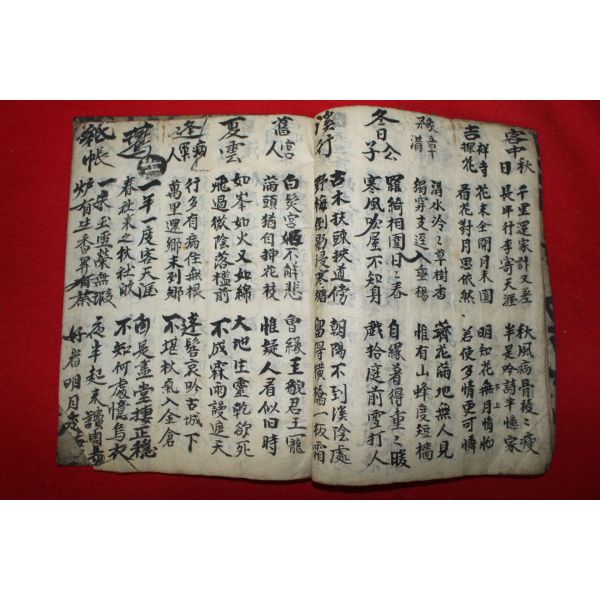 客中秋日
千里還家計又差
長年行李寄天涯
秋風病骨稜稜瘦
半是吟詩半憶家
吉祥寺探花
花未全開月未圓
看花對月思依然
明知花無月情物
若使多情更可憐
豫章溝
溝水泠泠草樹香
獨穿支逕入垂楊
薺花滿地無人見
惟有山蜂度短墻
冬日公子
羅綺相圍日日春
寒風吹屋不知身
自緣著得重重暖
戲拾庭前雪打人
溪行
古木扶踈挾道傍
野梅倒影浸寒塘
朝陽不到溪陰處
留得橫橋板霜
舊宮人
白髮宮姬不解悲
滿頭猶自揷花枝
曾緣玉貌君王寵
惟疑人看似旧時
夏雲
如峯如火又如綿
飛過微陰落檻前
大地生靈乾欲死
不成霖雨謾遮天
逢病軍人
行多有病住無根
萬里還鄕未到鄕
蓬鬓哀吟古城下
不堪秋氣入金倉
一年一度客天涯
春社來之秋社敀
向是畵堂捿正穩
不知何處憶烏衣
紙帳
一朶玉雲縈無瑕
夜半起來讀周易
好省明月